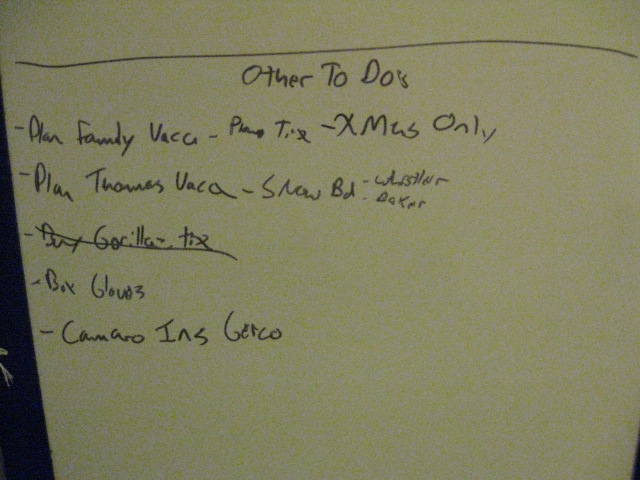 Other To Do's
- Plan Family Vaca - Plane Tix - X Mas Only
- Plan Thomas Vaca - Snow Bd - Whistler
- Baker
- Buy Gorillaz tix
- Box Gloves
- Camaro Ins Geico